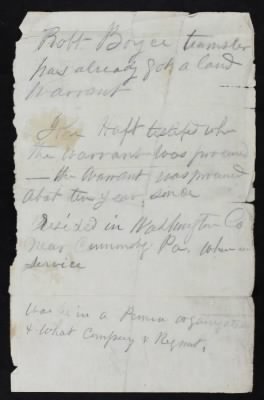 Robt Boyce teamster
has already got a land
Warrant
Hoft testified when
the Warrant was procured
— the Warrant was procured
about ten years since
Resided in Washington Co
Near Pa. when in
service
Was he in a organization
& What Company & Regment.